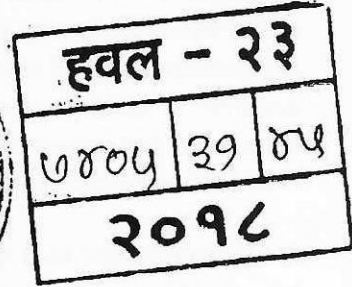 हवल - २३
७४०५ ३१ ४५
२०१८